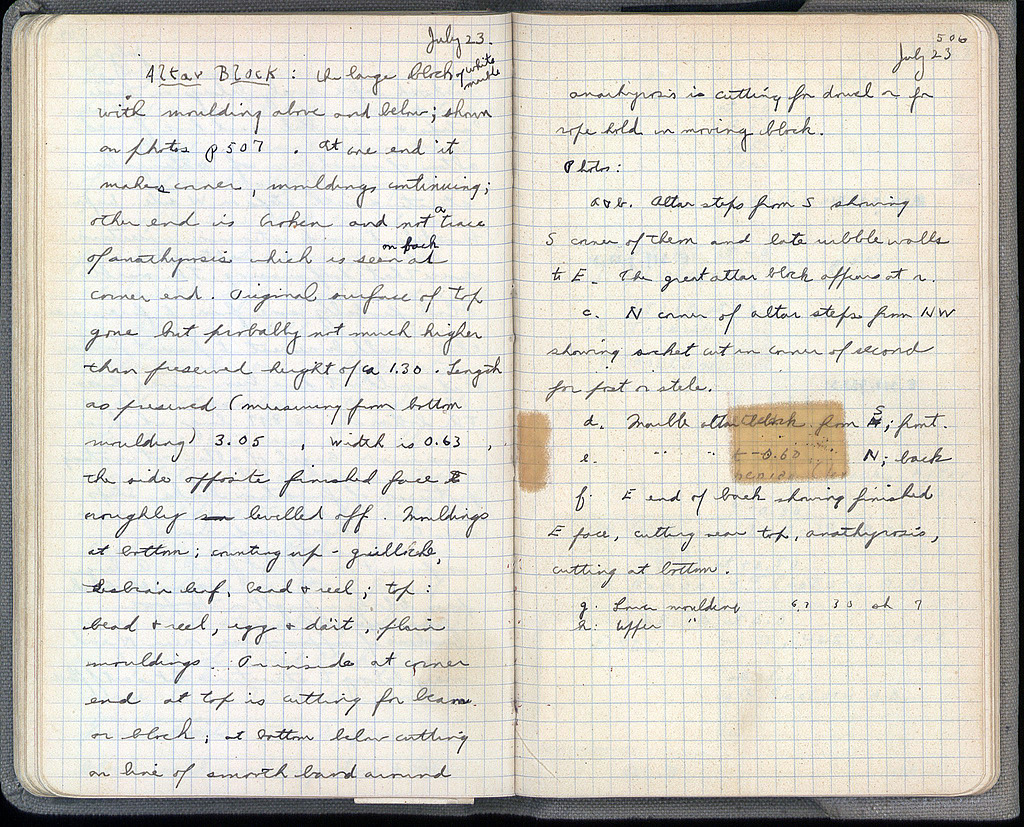 July 23.
Altar Block: A large block of white marble
with moulding above and below; shown
on photos p 507. At one end it
makes corner, mouldings continuing;
other end is broken and not a trace
of anathyrosis which is seen on back at
corner end. Original surface of top
gone but probably not much higher
than preserved height of ca 1.30. Length
as preserved (measuring from bottom
moulding) 3.05, width is 0.63,
the side opposite finished face
roughly levelled off. Mouldings
at bottom; counting up - guilloche,
Lesbian leaf, bead & reel; top:
bead & reel, egg & dart, plain
mouldings. On inside at corner
end at top is cutting for beam
or block; at bottom below cutting
on line of smooth band around
506
July 23
anathyrosis is cutting for dowel or for
rope hold in moving block.
Photos:
a & b. Altar steps from S showing
S corner of them and late rubble walls
to E. The great altar block appears at r.
c. N corner of altar steps from NW
showing socket cut in corner of second
for post or stele.
d. Marble altar block from S; front.
e. " " " " N; back
f. E end of back showing finished
E face, cutting near top, anathyrosis,
cutting at bottom.
g. Lower moulding
h. Upper "